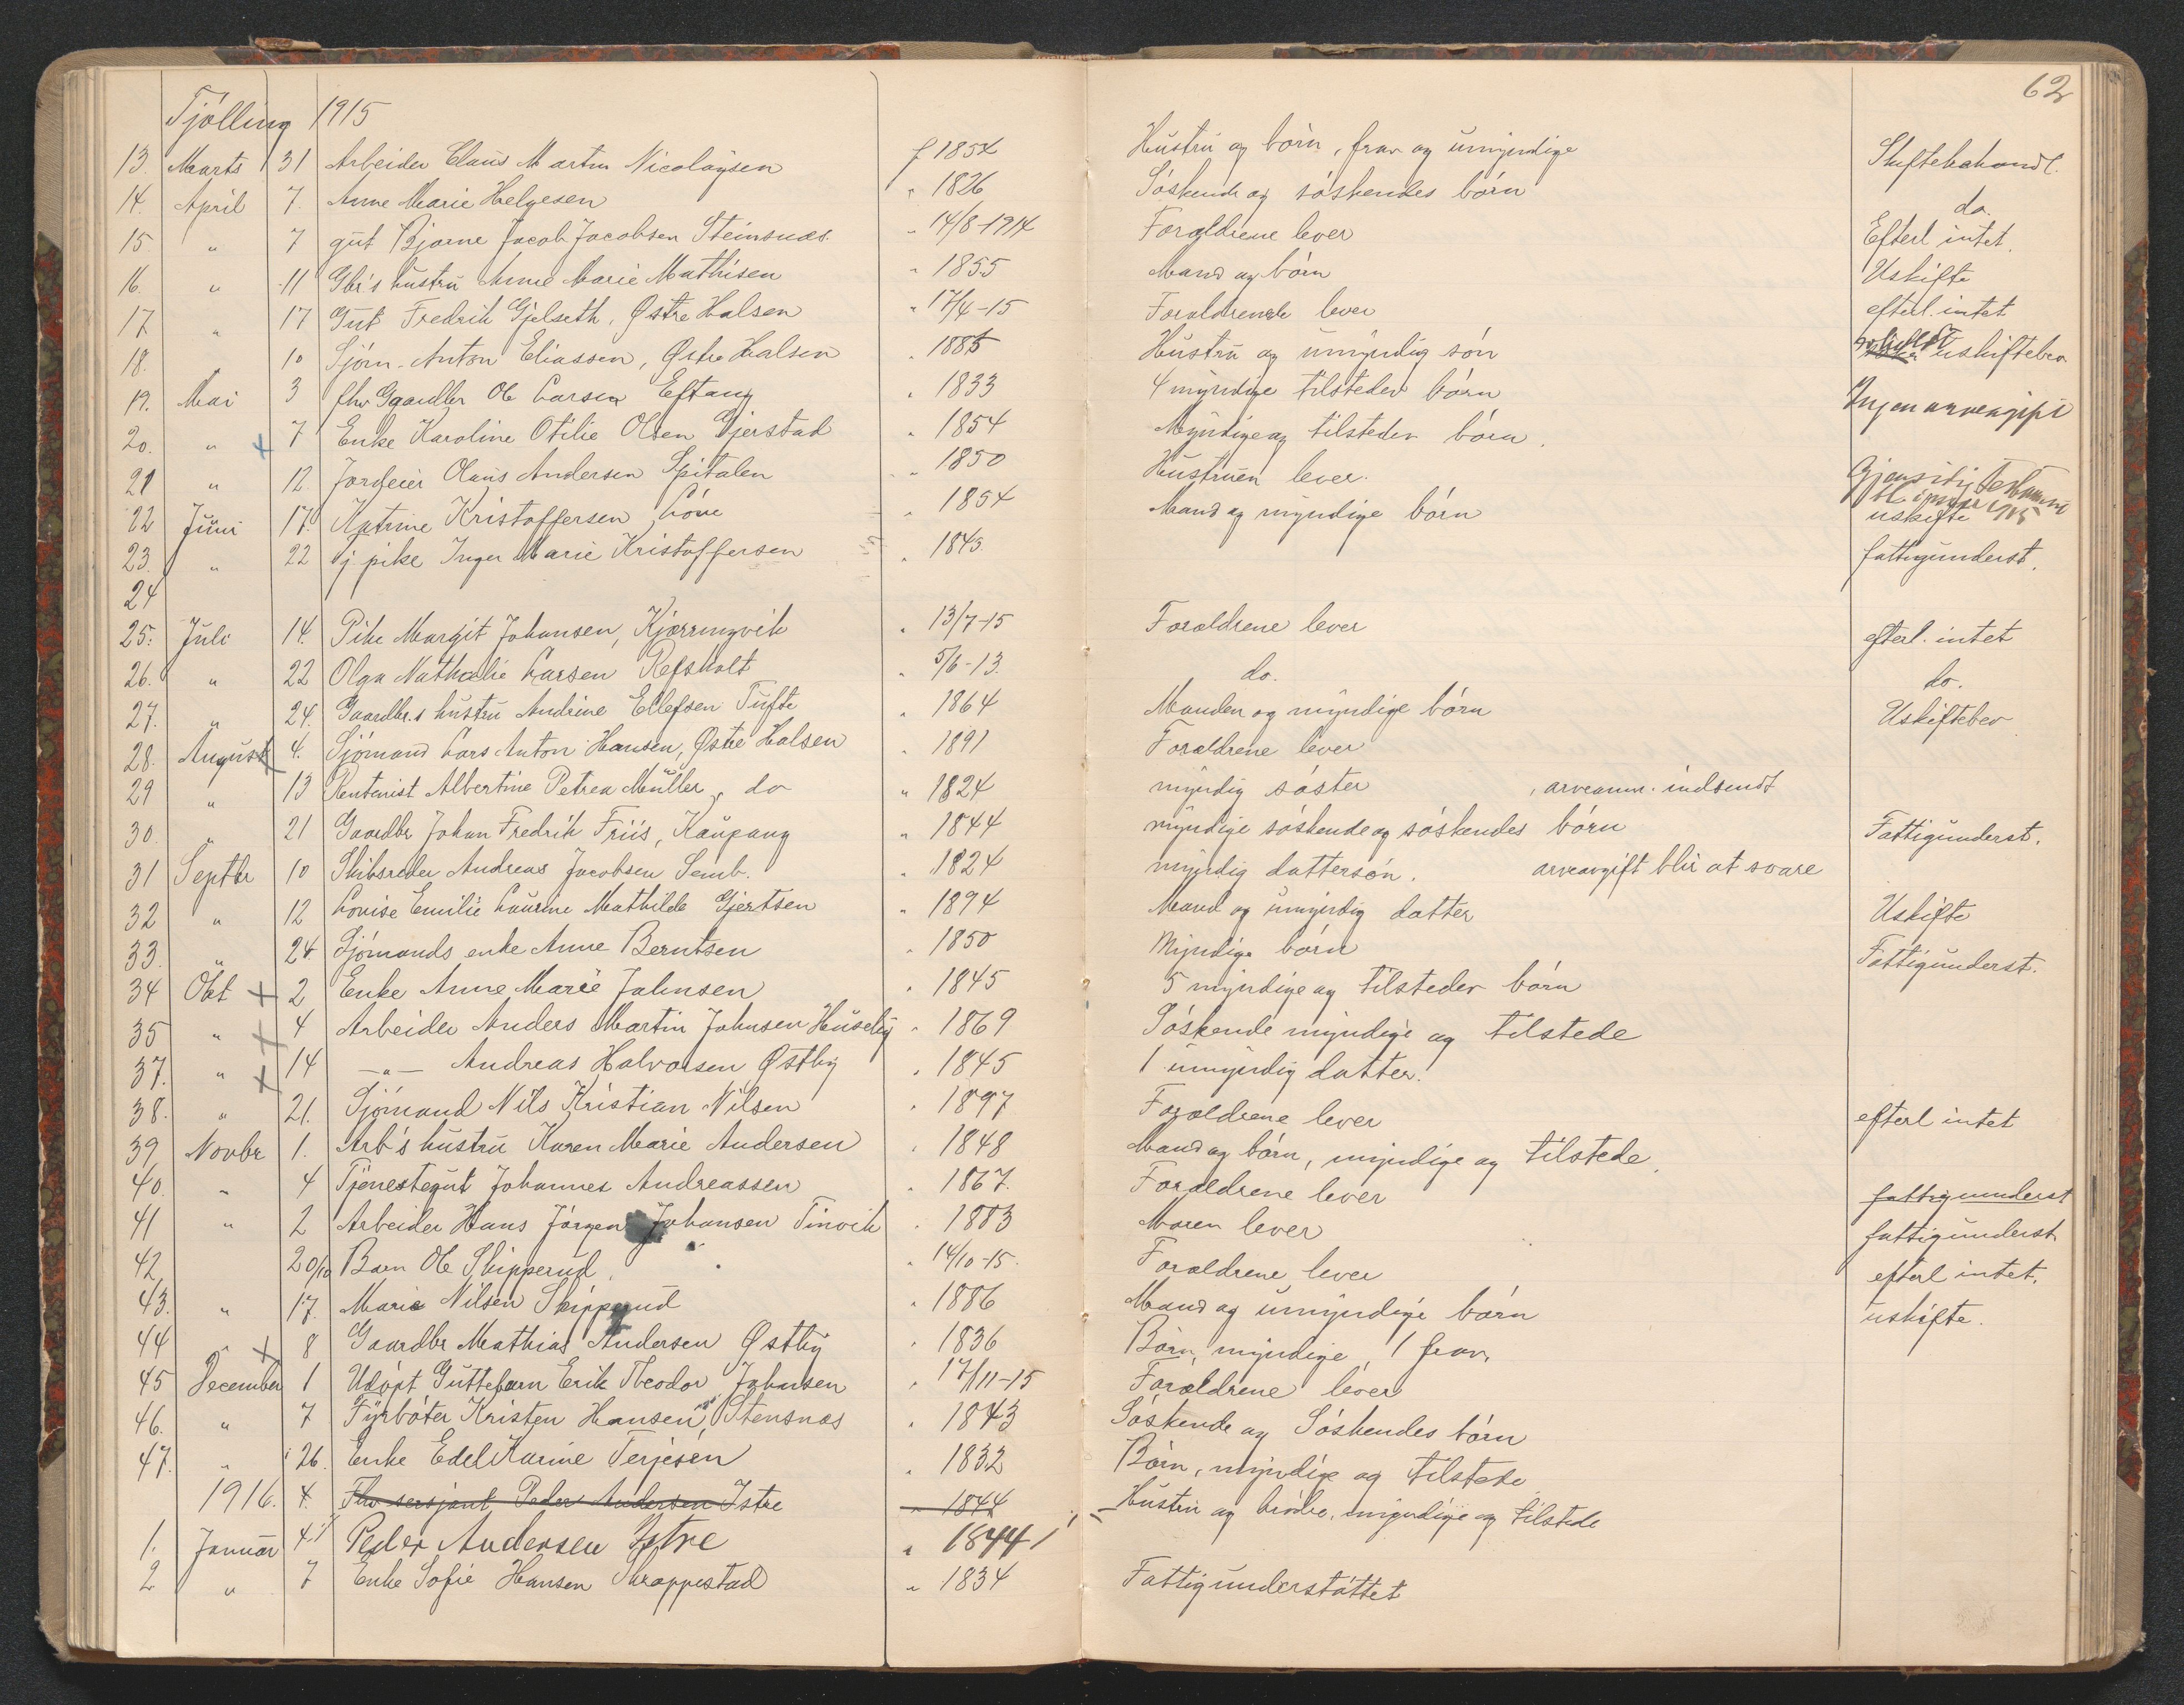 62
Tjölling 1915
13. Marts 31 Arbeider Claus Martin Nicolaysen f 1854 Hustru og börn, frav. og umyndige Skiftebehandl.
14. April 7. Anne Marie Helgesen " 1826 Söskende og söskendes börn do.
15. " 7 gut Bjarne Jacob Jacobsen Steinsnæs. " 14/8-1914 Forældrene lever Efterl intet.
16. " 11 Gbr's hustru Anne Marie Mathisen " 1855 Mand og börn Uskifte
17. " 17 Gut Fredrik Gjelseth, Østre Halsen " 17/4-15 Forældrene lever efterl. intet
18. " 10 Sjöm. Anton Eliassen, Østre Halsen " 1885 Hustru og umyndig sön uskiftebev
19. Mai 3 fhv Gaardbr Ole Larsen Eftang " 1833 4 myndige tilstedev börn Ingen arveavgift
20. " 7 Enke Karoline Otilie Olsen Gjerstad " 1854 Myndige og tilstedev börn.
21 " 12. Jordeier Olaus Andersen Spitalen " 1850 Hustruen lever. Gjensidig Testament
22 Juni 17. Katrine Kristoffersen Löve " 1854 Mand og myndige börn uskifte
23. " 22 pike Inger Marie Kristoffersen " 1845. fattigunderst.
24
25. Juli 14. Pike Margit Johansen, Kjærringvik " 13/7-15 Forældrene lever efterl. intet
26. " 22 Olga Nathalie Larsen Refsholt " 5/6-13. do. do.
27. " 24. Gaardbr.s hustru Andrine Ellefsen Tufte " 1864 Manden og myndige börn Uskiftebev
28. August 4. Sjömand Lars Anton Hansen, Østre Halsen " 1891 Forældrene lever
29 " 13 Rentenist Albertine Petrea Müller, do " 1824 myndig söster, arveanm. indsendt
30. " 21 Gaardbr Johan Fredrik Friis, Kaupang " 1844 myndige söskende og söskendes börn Fattigunderst.
31 Septbr 10 Skibsreder Andreas Jacobsen Semb. " 1824 myndig dattersön. arveavgift blir at svare
32 " 12 Lovise Emilie Laurine Mathilde Gjertsen " 1894 Mand og umyndig datter Uskifte
33. " 24. Sjömands enke Anne Berntsen " 1850 Myndige börn Fattigunderst.
34 Okt 2 Enke Anne Marie Johnsen " 1845 5 myndige og tilstedev börn
35 " 4 Arbeider Anders Martin Johnsen Huseby " 1869 Söskende myndige og tilstede
37. " 14 —"— Andreas Halvorsen Østby " 1845 1 umyndig datter.
38. " 21. Sjömand Nils Kristian Nilsen " 1897 Forældrene lever efterl intet
39 Novbr 1. Arb's hustru Karen Marie Andersen " 1848 Mand og börn, myndige og tilstede.
40. " 4 Tjenestegut Johannes Andreassen " 1867. Forældrene lever fattigunderst
41 " 2 Arbeider Hans Jörgen Johansen Tinvik " 1883 Moren lever fattigunderst
42. 20/10 Barn Ole Skipperud " 14/10-15. Forældrene lever efterl intet.
43. " 17. Marie Nilsen Skipperud " 1886 Mand og umyndige börn uskifte.
44 " 8 Gaardbr Mathias Andersen Østby " 1836 Börn, myndige, 1 frav.
45 December 1 Udöpt Guttebarn Erik Theodor Johnsen " 17/11-15 Forældrene lever
46. " 7 Fyrböter Kristen Hansen, Stensnæs " 1843 Söskende og Söskendes börn
47. " 26. Enke Edel Karine Terjesen " 1832 Börn, myndige og tilstede
1916. 4. Fhv sersjant Peder Andersen Istre " 1844 Hustru og brödre, myndige og tilstede
1. Januar 4. Peder Andersen Istre " 1844
2 " 7 Enke Sofie Hansen Skrappestad " 1834 Fattigunderstöttet